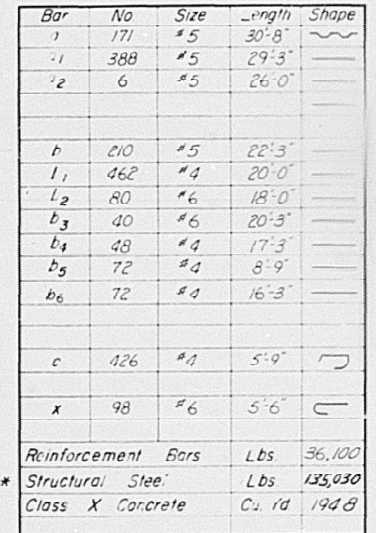 Bar No Size Length Shape
a 171 #5 30'-8"
a1 388 #5 29'-3"
a2 6 #5 26'-0"
b 210 #5 22'-3"
b1 462 #4 20'-0"
b2 80 #6 18'-0"
b3 40 #6 20'-3"
b4 48 #4 17'-3"
b5 72 #4 8'-9"
b6 72 #4 16'-3"
c 426 #4 5'-9"
x 98 #6 5'-6"
Reinforcement Bars Lbs. 36,100
* Structural Steel Lbs 135,030
Class X Concrete Cu. Yd. 194.8